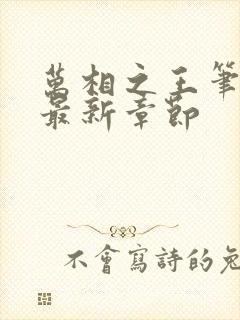 萬相之王筆
最新章節
不會寫詩的兔